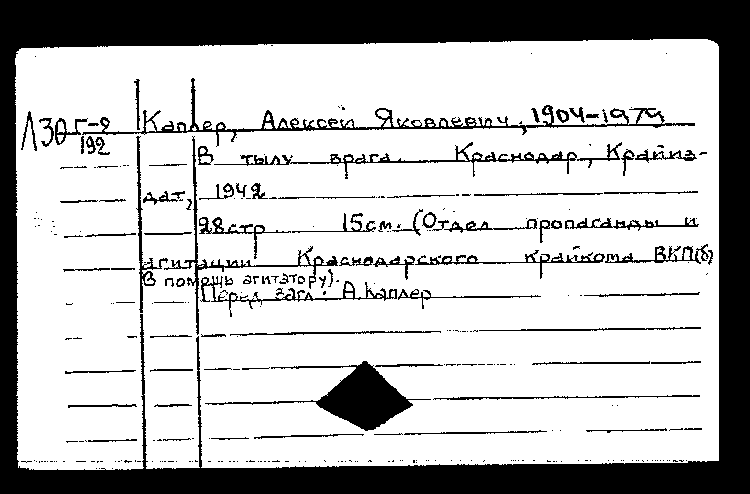 Л30 Г-2 Каплер, Алексей Яковлевич, 1904-1979
192
В тылу врага. Краснодар, Крайиз-
дат, 1942
28стр 15см. (Отдел пропаганды и
агитации Краснодарского крайкома ВКП(б)
В помощь агитатору).
Перед загл: А.Каплер